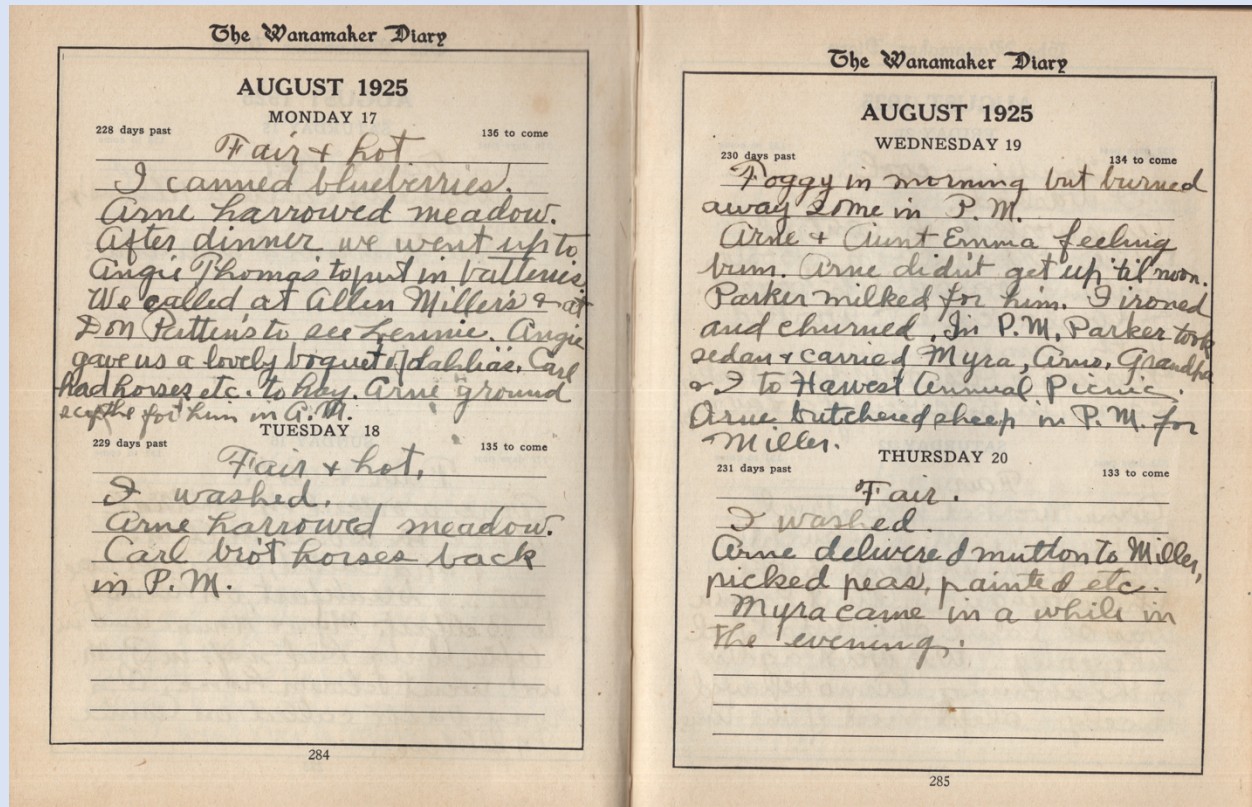 The Wanamaker Diary
AUGUST 1925
MONDAY 17
228 days past 136 to come
Fair & hot
I canned blueberries.
Arne harrowed meadow.
After dinner we went up to
Angie Thomas' to put in batteries.
We called at Allen Miller's & at
Don Patten's to see Lennie. Angie
gave us a lovely boquet of dahlias. Carl
had horses etc. to hay. Arne ground
scythe for him in P.M.
TUESDAY 18
229 days past 135 to come
Fair & hot.
I washed.
Arne harrowed meadow.
Carl brot horses back
in P.M.
284
The Wanamaker Diary
AUGUST 1925
WEDNESDAY 19
230 days past 134 to come
Foggy in morning but burned
away some in P.M.
Arne & Aunt Emma feeling
bum. Arne didn't get up 'til noon.
Parker milked for him. I ironed
and churned. In P.M. Parker took
sedan & carried Myra, Arno, Grandpa
& I to Harvest Annual Picnic.
Arne butchered sheep in P.M. for
Miller.
THURSDAY 20
231 days past 133 to come
Fair.
I washed.
Arne delivered mutton to Miller,
picked peas, painted etc.
Myra came in a while in
the evening.
285